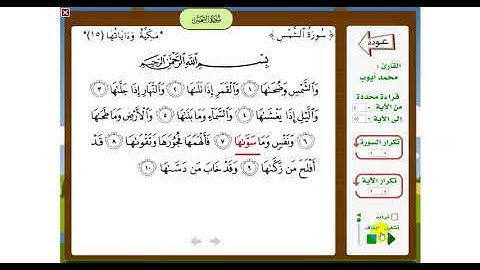 سورة الشمس
﴿ سُورَةُ الشَّمْسِ ﴾ *مَكِيَّةٌ وَءَايَاتُهَا (١٥)*
بِسْمِ اللَّهِ الرَّحْمَٰنِ الرَّحِيمِ
وَالشَّمْسِ وَضُحَىٰهَا ١ وَالْقَمَرِ إِذَا تَلَىٰهَا ٢ وَالنَّهَارِ إِذَا جَلَّىٰهَا ٣
وَالَّيْلِ إِذَا يَغْشَىٰهَا ٤ وَالسَّمَآءِ وَمَا بَنَىٰهَا ٥ وَالْأَرْضِ وَمَا طَحَىٰهَا
٦ وَنَفْسٍ وَمَا سَوَّىٰهَا ٧ فَأَلْهَمَهَا فُجُورَهَا وَتَقْوَىٰهَا ٨ قَدْ
أَفْلَحَ مَن زَكَّىٰهَا ٩ وَقَدْ خَابَ مَن دَسَّىٰهَا ١٠
عودة
القارئ :
محمد أيوب
قراءة محددة
من الآية
إلى الآية
تكرار السورة
تكرار الآية
ترديد
تشغيل إيقاف